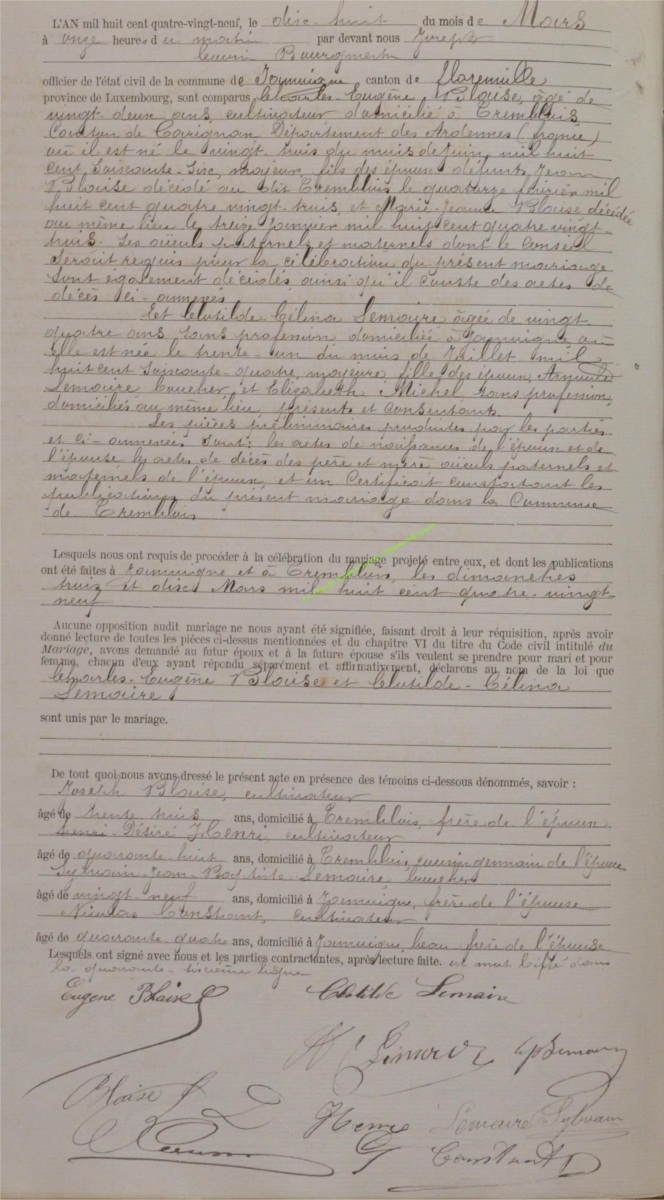 L'AN mil huit cent quatre-vingt-neuf, le dix huit du mois de Mars
à onze heures du matin par devant nous Joseph
Bourgmestre
officier de l'état civil de la commune de Jamoigne canton de Florenville
province de Luxembourg, sont comparus Charles-Eugène Blaise, âgé de
vingt-deux ans, cultivateur domicilié à Tremblois,
Canton de Carignan Département des Ardennes (france)
où il est né le vingt trois du mois de Juin, mil huit
cent Soixante-Six, majeur, fils des époux défunts Jean
Blaise décédé au dit Tremblois le quatorze février mil
huit cent quatre vingt-trois, et Marie-Jeanne Blaise décédée
au même lieu le treize Janvier mil huit cent quatre vingt-
trois. Ses aïeuls paternels et maternels dont le Conseil
Serait requis pour la célébration du présent mariage
Sont également décédés ainsi qu'il Conste des actes de
décès ci-annexés
Et Clotilde Célina Lemaire âgée de vingt-
quatre ans, Sans profession domiciliée à Jamoigne où
Elle est née le trente-un du mois de Juillet mil
huit cent Soixante-quatre, majeure fille des époux
Lemaire boucher, et Elizabeth Michel sans profession,
domiciliés au même lieu, présents et Consentants.
Les pièces préliminaires produites par les parties
et ci-annexées Sont: les actes de naissances de l'époux et de
l'épouse les actes de décès des père et mère aïeuls paternels et
maternels de l'époux, et un Certificat constatant les
publications du présent mariage dans la Commune
de Tremblois
Lesquels nous ont requis de procéder à la célébration du mariage projeté entre eux, et dont les publications
ont été faites à Jamoigne et à Tremblois, les dimanches
trois et dix Mars mil huit cent quatre-vingt-
neuf
Aucune opposition audit mariage ne nous ayant été signifiée, faisant droit à leur réquisition, après avoir
donné lecture de toutes les pièces ci-dessus mentionnées et du chapitre VI du titre du Code civil intitulé du
Mariage, avons demandé au futur époux et à la future épouse s'ils veulent se prendre pour mari et pour
femme, chacun d'eux ayant répondu séparément et affirmativement, déclarons au nom de la loi que
Charles-Eugène Blaise et Clotilde-Célina
Lemaire
sont unis par le mariage.
De tout quoi nous avons dressé le présent acte en présence des témoins ci-dessous dénommés, savoir :
Joseph Blaise, cultivateur
âgé de trente trois ans, domicilié à Tremblois, frère de l'époux
Désiré Henri cultivateur
âgé de quarante-huit ans, domicilié à Tremblois, cousin germain de l'époux
Sylvain-Jean-Baptiste-Lemaire, boucher
âgé de vingt-neuf ans, domicilié à Jamoigne, frère de l'épouse
Nicolas Constant, Cultivateur
âgé de quarante-quatre ans, domicilié à Jamoigne, beau frère de l'épouse
Lesquels ont signé avec nous et les parties contractantes, après lecture faite. un mot biffé dans
la quarante-sixième ligne
Eugène Blaise Clotilde Lemaire
Blaise J Henri Lemaire Sylvain
Constant